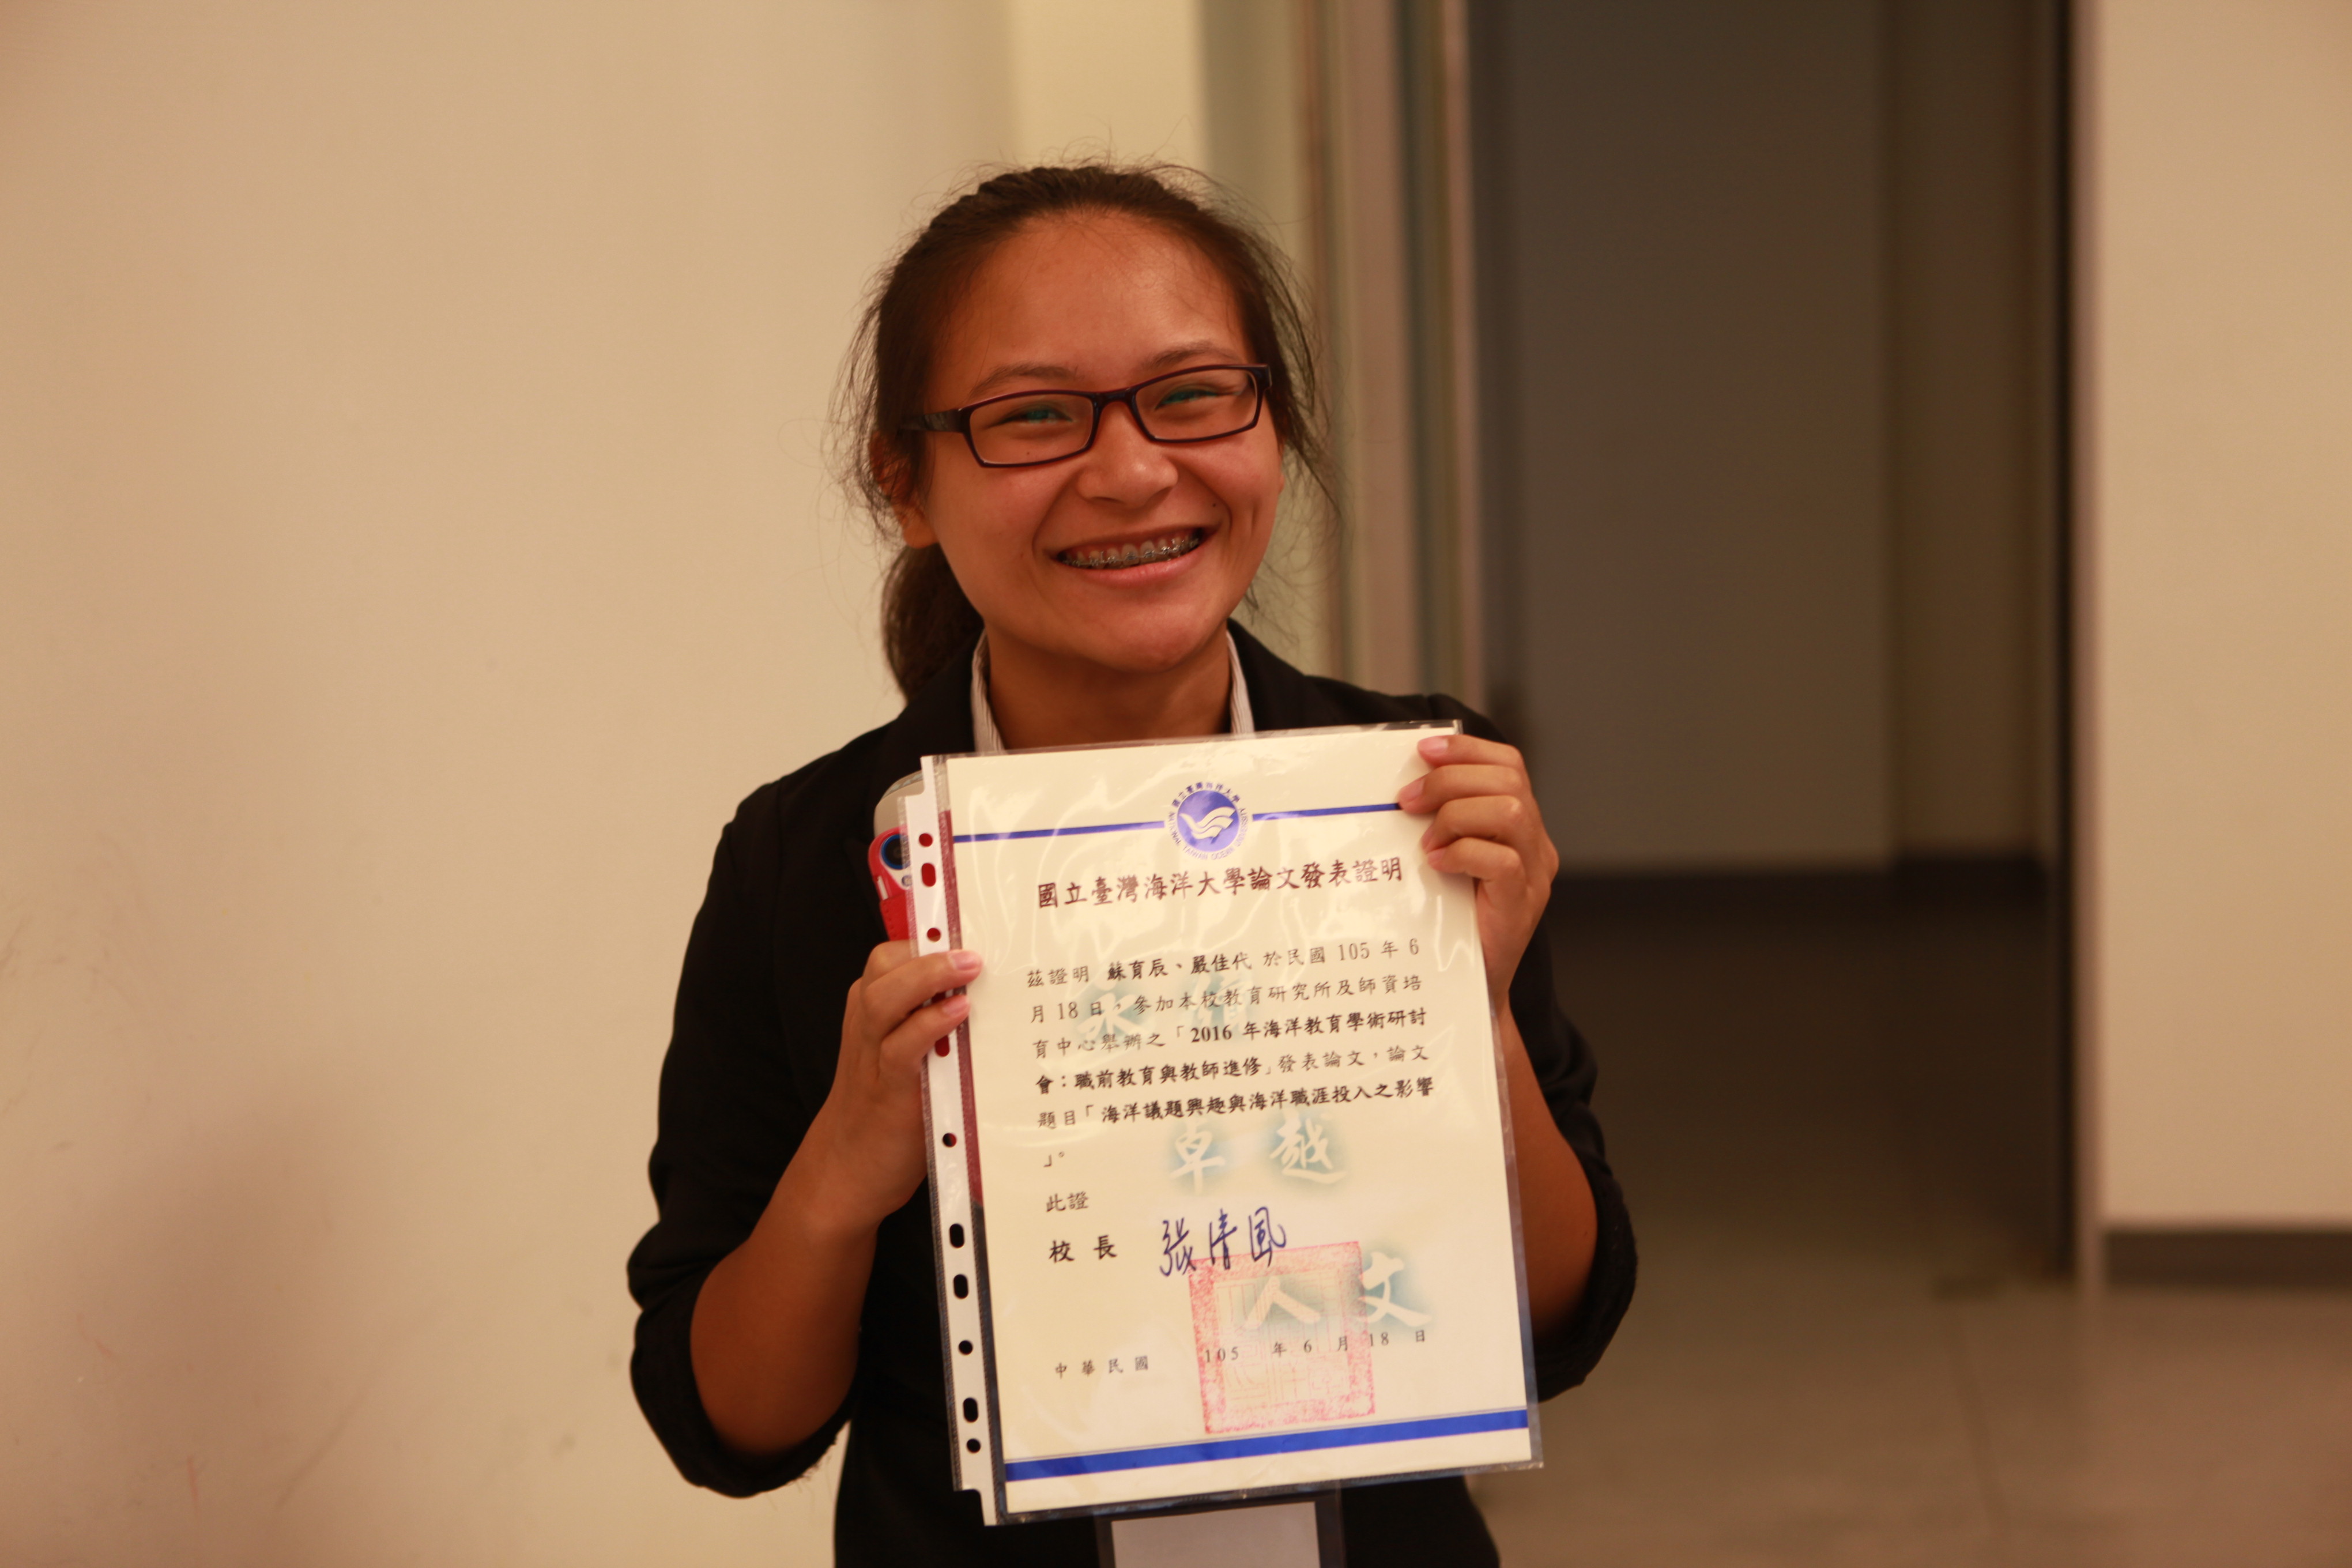 國立臺灣海洋大學
NATIONAL TAIWAN OCEAN UNIVERSITY
國立臺灣海洋大學論文發表證明
茲證明 蘇育辰、嚴佳代 於民國 105 年 6
月 18 日，參加本校教育研究所及師資培
育中心舉辦之「2016 年海洋教育學術研討
會：職前教育與教師進修」發表論文，論文
題目「海洋議題興趣與海洋職涯投入之影響
」。
卓越
此證
校 長 張清風
人文
中 華 民 國 105 年 6 月 18 日